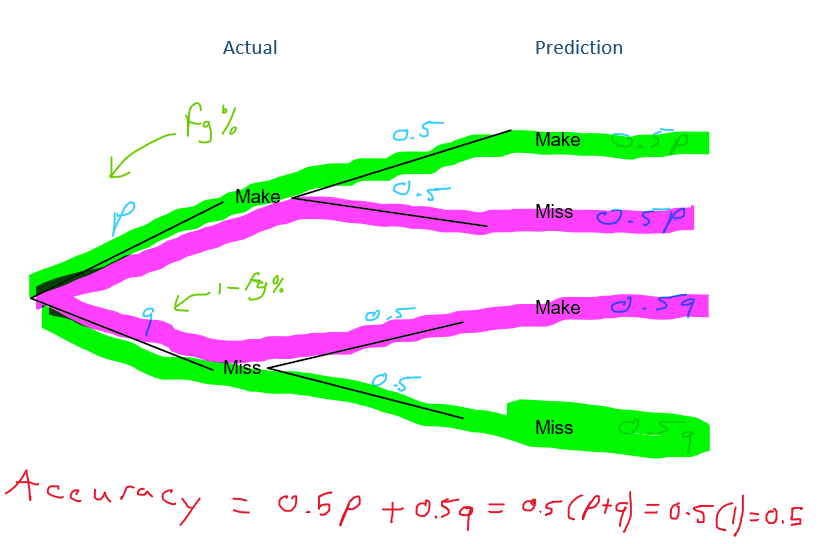 Actual Prediction
fg%
0.5 Make 0.5p
p Make 0.5
Miss 0.5p
1-fg%
q 0.5 Make 0.5q
Miss 0.5
Miss 0.5q
Accuracy = 0.5p + 0.5q = 0.5(p+q) = 0.5(1)=0.5